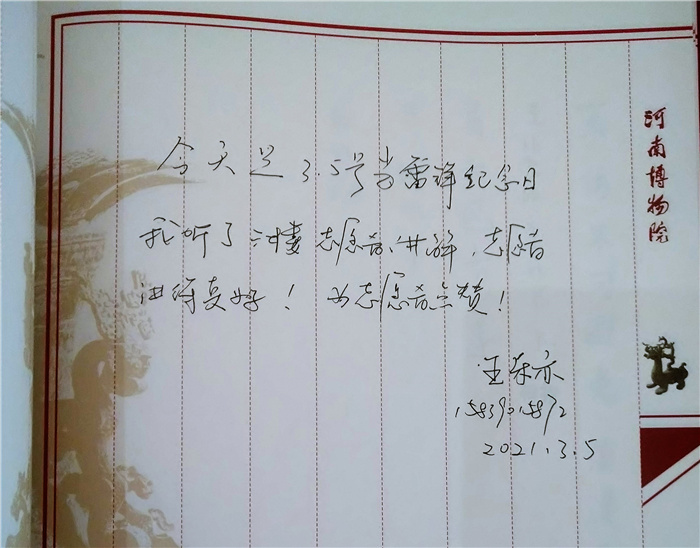 今天是3.5号学雷锋纪念日
我听了 志愿者讲解，志愿者
讲得真好！为志愿者点赞！
王
15839015892
2021.3.5
河南博物院